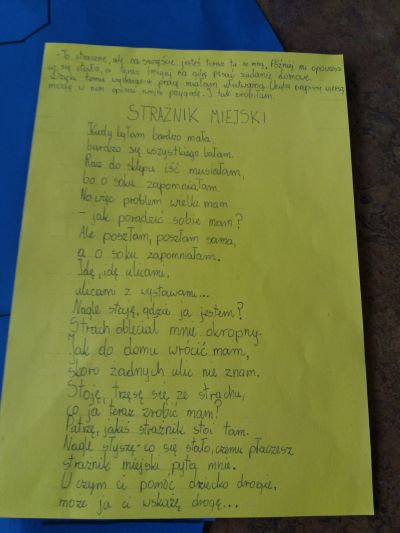 - To straszne, ale na szczęście jesteś teraz tu ze mną. Później mi opowiesz
co się stało, a teraz zmykaj na górę pisać zadanie domowe.
Dzięki temu wydarzeniu pracę miałam ułatwioną. Chyba napiszę wiersz,
mogę w nim opisać moją przygodę. I tak zrobiłam.
STRAŻNIK MIEJSKI
Kiedy byłam bardzo mała,
bardzo się wszystkiego bałam.
Raz do sklepu iść musiałam,
bo o soku zapomniałam.
No więc problem wielki mam
- jak poradzić sobie mam?
Ale poszłam, poszłam sama,
a o soku zapomniałam.
Idę, idę ulicami,
ulicami z wystawami...
Nagle staję, gdzie ja jestem?
Strach obleciał mnie okropny.
Jak do domu wrócić mam,
skoro żadnych ulic nie znam.
Stoję, trzęsę się ze strachu,
co ja teraz zrobić mam?
Patrzę, jakiś strażnik stoi tam.
Nagle słyszę - co się stało, czemu płaczesz
strażnik miejski pyta mnie.
W czym ci pomóc dziecko drogie,
może ja ci wskażę drogę...